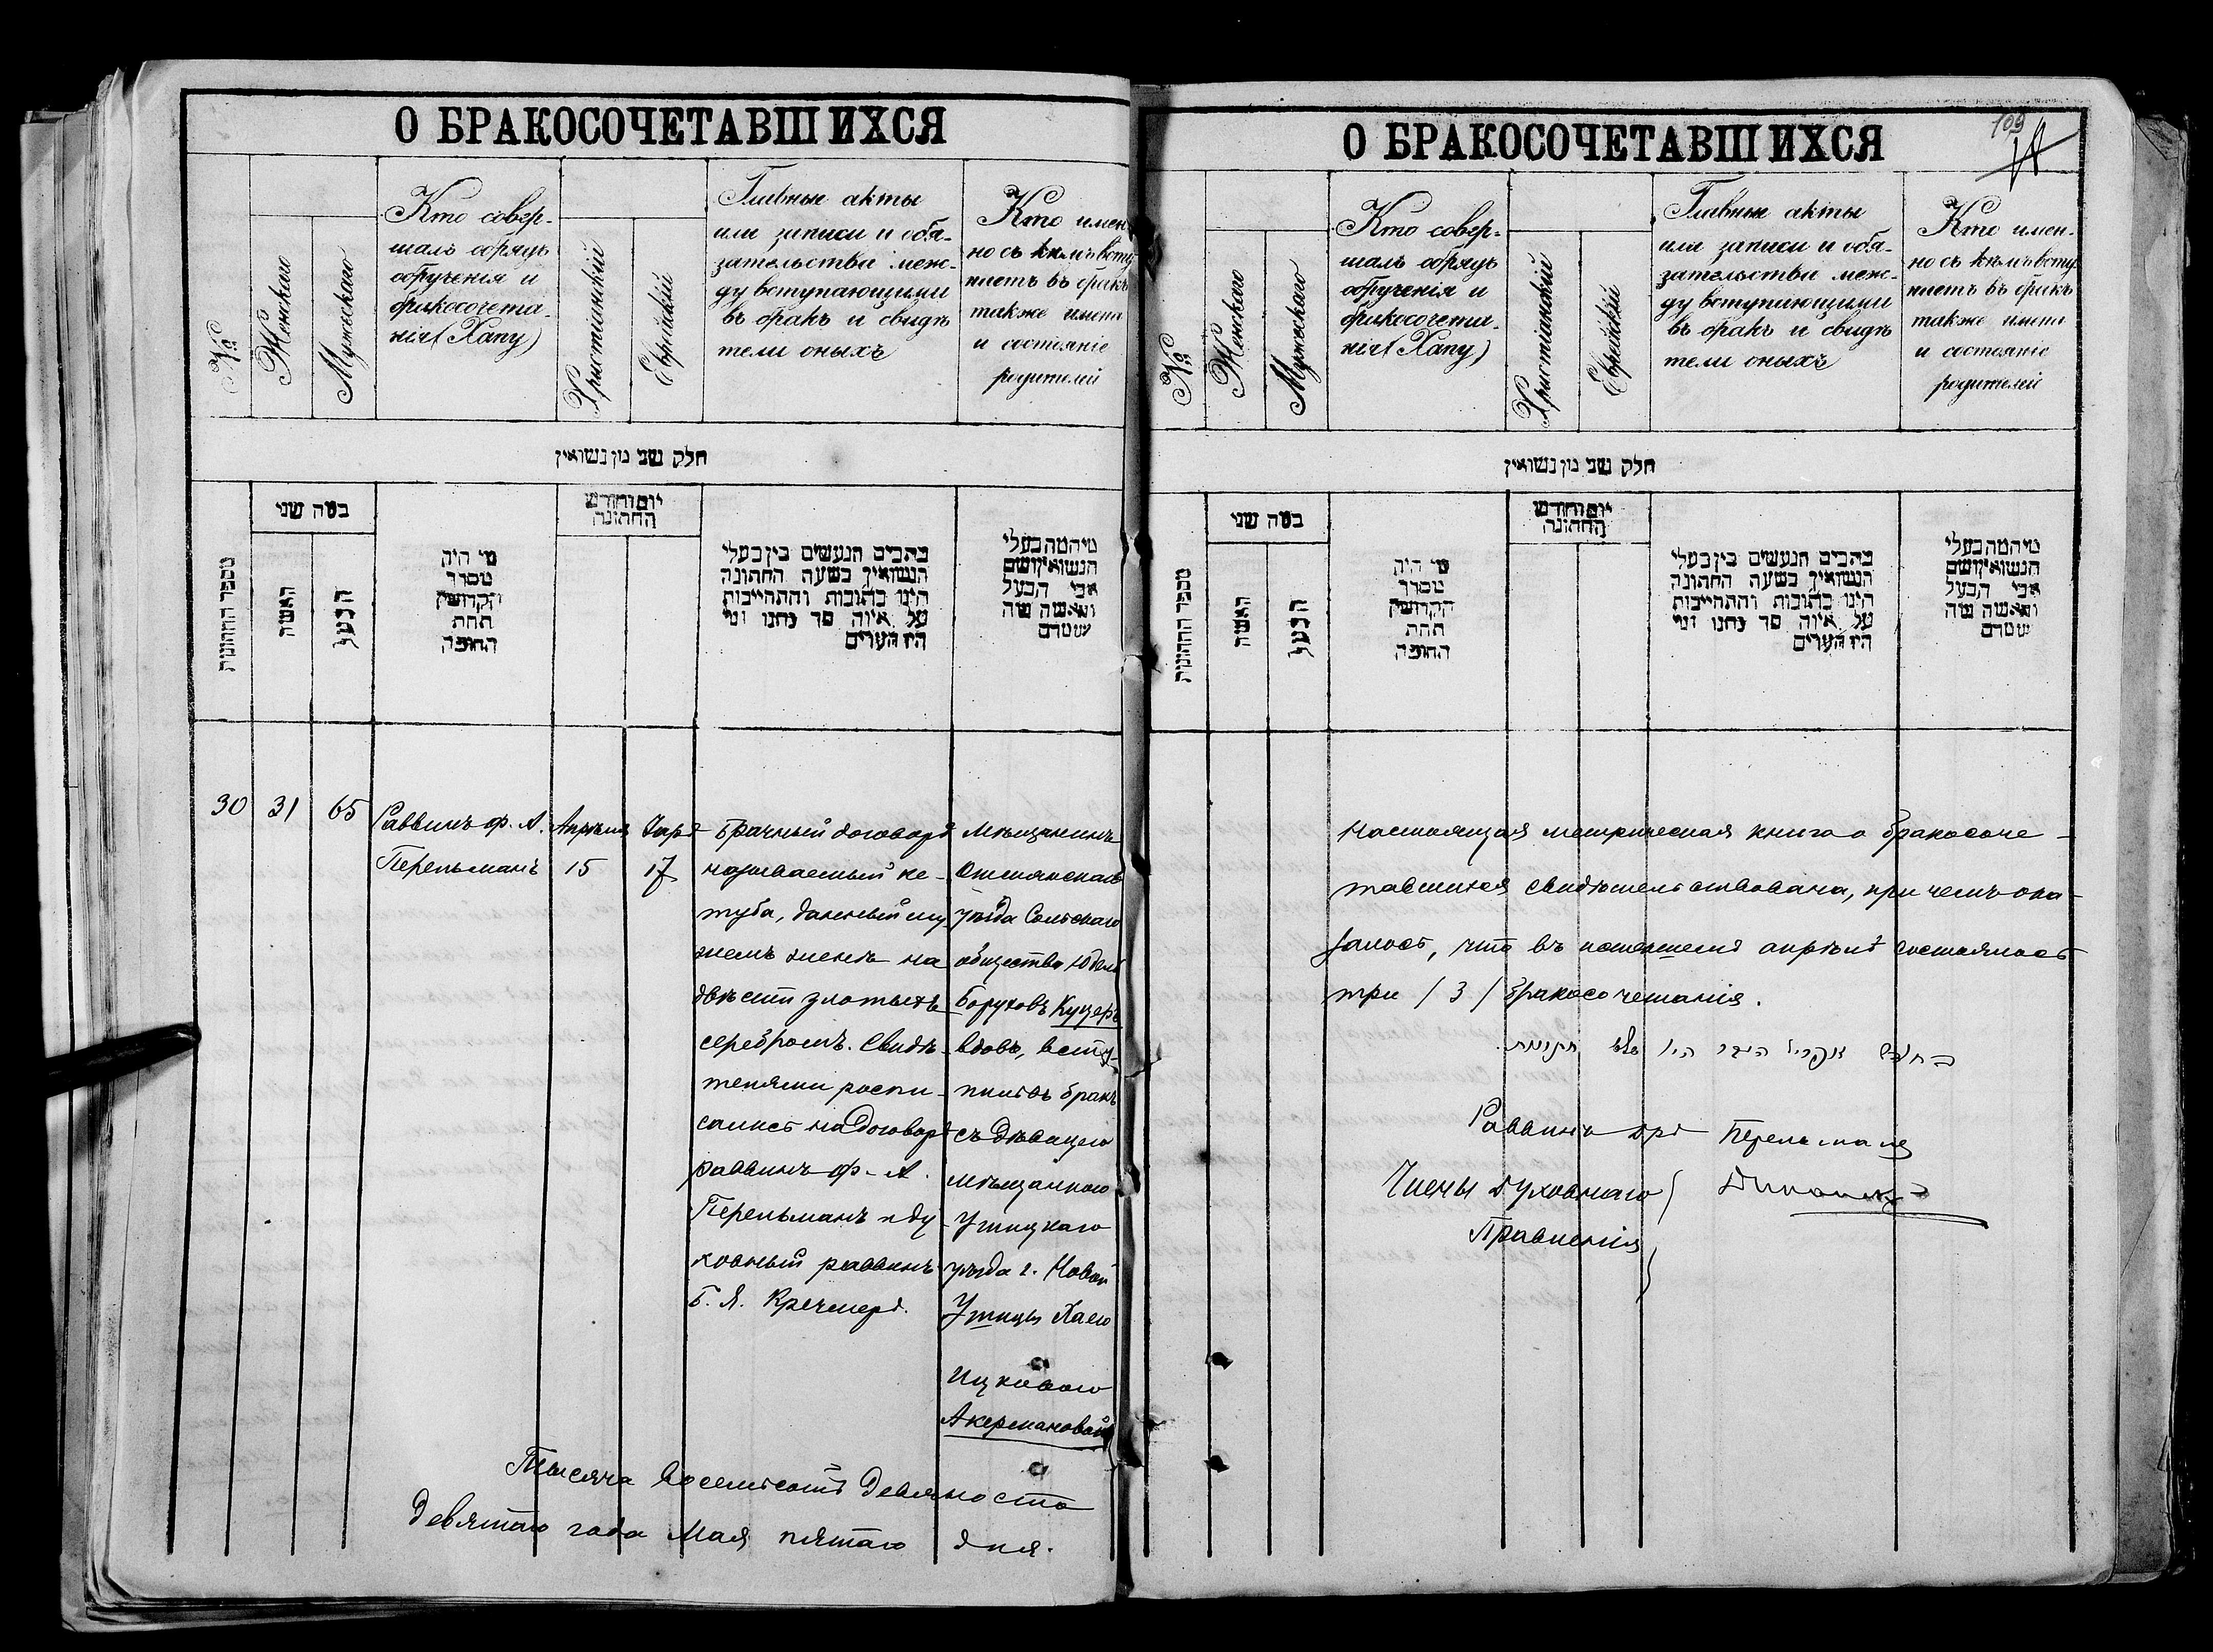 О БРАКОСОЧЕТАВШИХСЯ
№
Женскаго
Мужескаго
Кто совер-
шалъ обрядъ
обрученія и
бракосочета-
нія (Хупу)
Христіанскій
Еврейскій
Главные акты
или записи и обя-
зательства меж-
ду вступающими
въ бракъ и свидѣ
тели оныхъ
Кто имен
но съ кѣмъ всту
паетъ въ бракъ
также имена
и состояніе
родителей
חלק שני מן נשואין
מספר החתונות
כמה שני
האשה
הבעל
מי היה
מסדר
הקדושין
תחת
החופה
יום וחודש
החתונה
כתבים הנעשים בין בעלי
הנשואין בשעה החתונה
היינו כתובות והתחייבות
על איזה סך נתנו ומי
היו העדים
מיהמה בעלי
הנשואין ושם
אבי הבעל
והאשה ומה
שטרם
30
31
65
Раввинъ Ф. А.
Перельманъ
Апрѣля
15
Іаръ
17
Брачный договоръ
называемый ке-
туба, данный му
жемъ женѣ на
двѣсти злотыхъ
серебромъ. Свидѣ-
телями роспи-
сались на договорѣ
раввинъ Ф. А.
Перельманъ и ду
ховный раввинъ
Б. Я. Кречмеръ.
Мѣщанинъ
Ошмянскаго
уѣзда Солскаго
общества Юдель
Боруховъ Куцеръ
вдовъ, всту-
пилъ въ бракъ
съ дѣвицею
мѣщанкою
Ушицкаго
уѣзда г. Новой
Ушицы Хаею
Ицковою
Акермановой
Тысяча восемьсотъ девяносто
девятаго года Мая пятаго дня.
О БРАКОСОЧЕТАВШИХСЯ
109
№
Женскаго
Мужескаго
Кто совер-
шалъ обрядъ
обрученія и
бракосочета-
нія (Хупу)
Христіанскій
Еврейскій
Главные акты
или записи и обя-
зательства меж-
ду вступающими
въ бракъ и свидѣ
тели оныхъ
Кто имен-
но съ кѣмъ всту
паетъ въ бракъ
также имена
и состояніе
родителей
חלק שני מן נשואין
מספר החתונות
כמה שני
האשה
הבעל
מי היה
מסדר
הקדושין
תחת
החופה
יום וחודש
החתונה
כתבים הנעשים בין בעלי
הנשואין בשעה החתונה
היינו כתובות והתחייבות
על איזה סך נתנו ומי
היו העדים
מיהמה בעלי
הנשואין ושם
אבי הבעל
והאשה ומה
שטרם
Настоящая метрическая книга о бракосоче-
тавшихся свидѣтельствована, при чемъ ока-
залось, что въ истекшемъ апрѣлѣ состоялось
три / 3 / бракосочетанія.
Раввинъ Перельманъ
Члены Духовнаго
Правленія